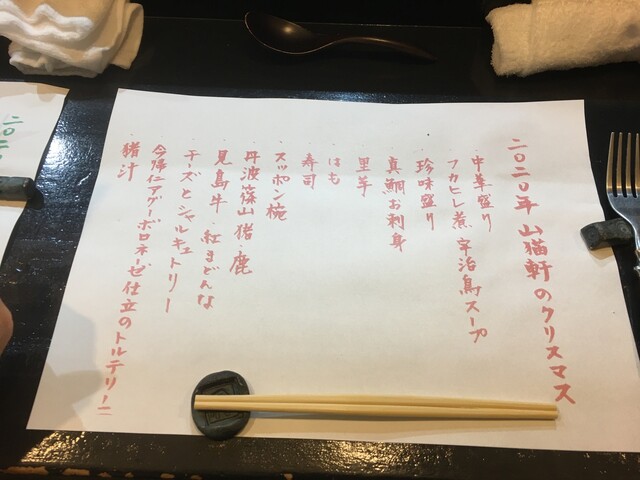 二〇二〇年 山猫軒のクリスマス
・中華盛り
・フカヒレ煮 宇治鳥スープ
・珍味盛り
・真鯛お刺身
・里芋
・はも
・寿司
・スッポン椀
・丹波篠山猪・鹿
・見島牛・紅まどんな
・チーズとシャルキュトリー
・今帰仁アグーボロネーゼ仕立のトルテリーニ
・猪汁
二〇二